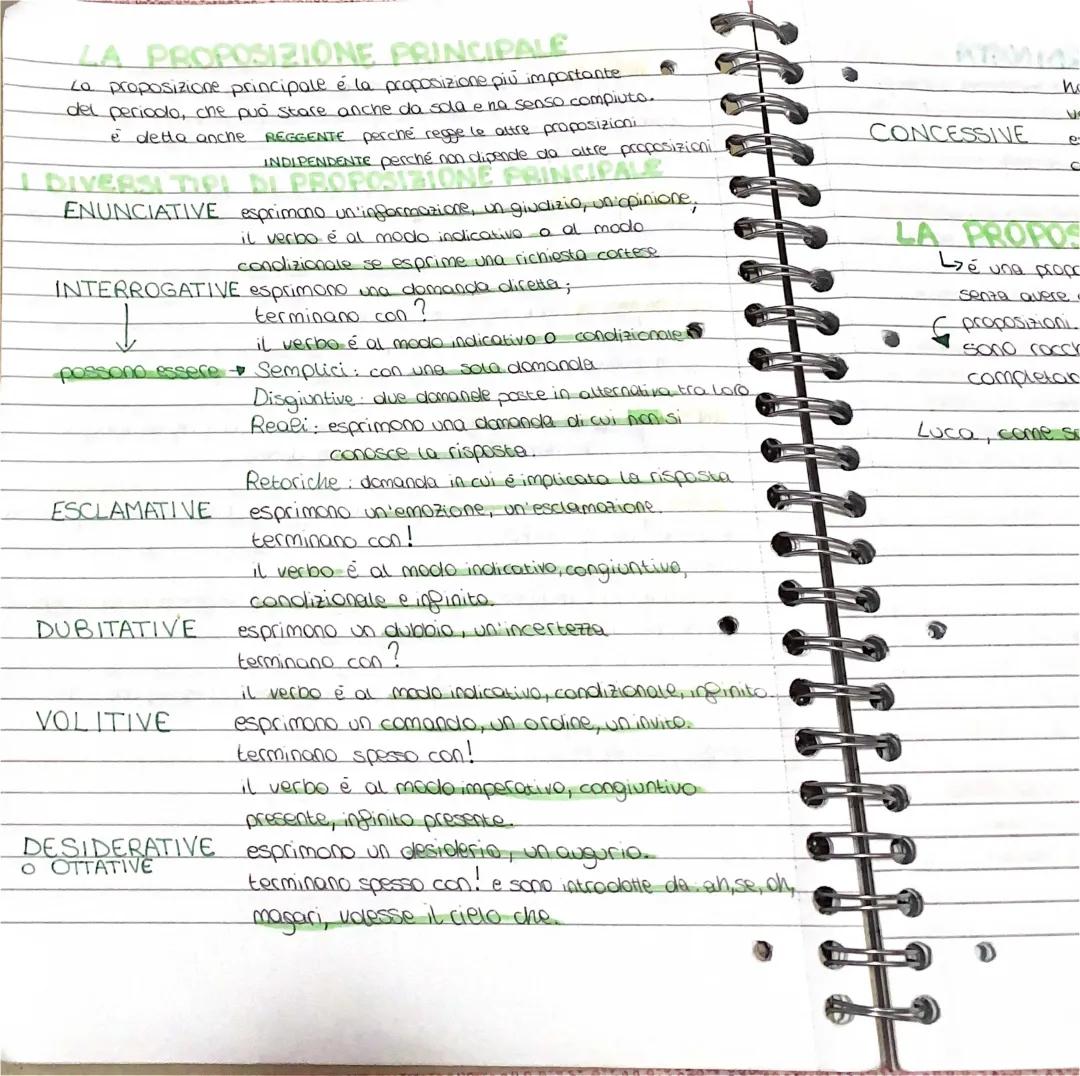 LA PROPOSIZIONE PRINCIPALE
La proposizione principale é la proposizione piú importante
del periodo, che puó stare anche da sola e ha senso compiuto.
é detta anche REGGENTE perché regge le altre proposizioni
INDIPENDENTE perché non dipende da altre proposizioni
I DIVERSI TIPI DI PROPOSIZIONE PRINCIPALE
ENUNCIATIVE esprimono un'informazione, un giudizio, un'opinione,
il verbo é al modo indicativo o al modo
condizionale se esprime una richiesta cortese
INTERROGATIVE esprimono una domanda diretta;
terminano con ?
il verbo é al modo indicativo o condizionale
possono essere → Semplici: con una sola domanda
Disgiuntive: due domande poste in alternativa tra loro
Reali: esprimono una domanda di cui non si
conosce la risposta.
Retoriche: domanda in cui é implicata la risposta
ESCLAMATIVE esprimono un'emozione, un'esclamazione.
terminano con!
il verbo é al modo indicativo, congiuntivo,
condizionale e infinito.
DUBITATIVE esprimono un dubbio, un'incertezza
terminano con ?
il verbo é al modo indicativo, condizionale, infinito.
VOLITIVE esprimono un comando, un ordine, un invito.
terminano spesso con!
il verbo é al modo imperativo, congiuntivo
presente, infinito presente.
DESIDERATIVE esprimono un desiderio, un augurio.
o OTTATIVE
terminano spesso con! e sono introdotte da: ah, se, oh,
magari, volesse il cielo che.
CONCESSIVE
LA PROPOS
↳ é una propo
senza avere
proposizioni.
sono racch
completar
Luca, come s